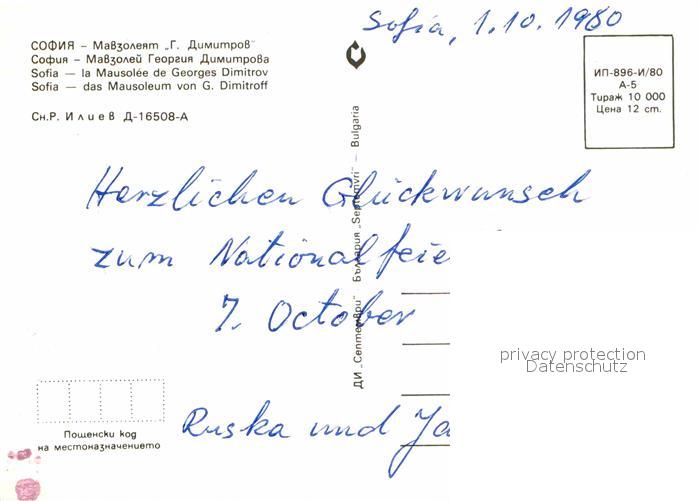 Sofia, 1.10.1980
СОФИЯ – Мавзолеят „Г. Димитров"
София – Мавзолей Георгия Димитрова
Sofia — la Mausolée de Georges Dimitrov
Sofia — das Mausoleum von G. Dimitroff
Сн.Р. Илиев Д-16508-А
ИП-896-И/80
А-5
Тираж 10 000
Цена 12 ст.
ДИ „Септември" България „Septemvri" — Bulgaria
Herzlichen Glückwunsch
zum Nationalfeie
7. October
privacy protection
Datenschutz
Ruska und Ja
Пощенски код
на местоназначението